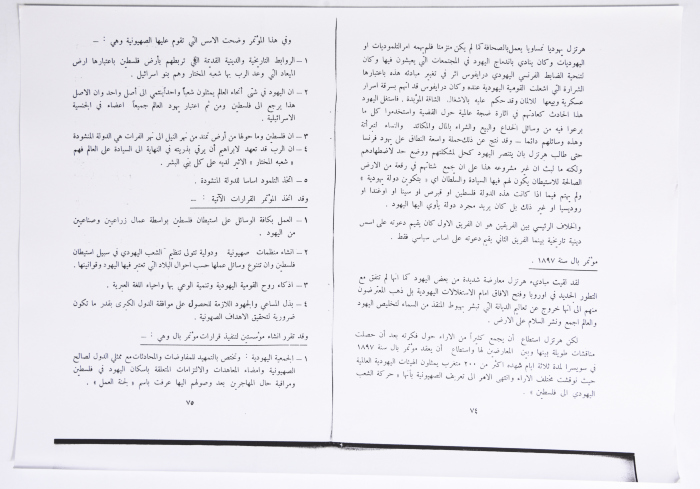 هرتزل يهوديا نمساويا يعمل بالصحافة كما لم يكن متزمتا فلم يهمه امر التلموديات او
اليهوديات وكان ينادي باندماج اليهود في المجتمعات التي يعيشون فيها وكان
لتنحية الضابط الفرنسي اليهودي درايفوس اثر في تغيير مبادئه هذه باعتبارها
الشرارة التي اشعلت القومية اليهودية عنده وكان درايفوس قد اتهم بسرقة اسرار
عسكرية وبيعها للالمان وقد حكم عليه بالاشغال الشاقة المؤبدة . فاستغل اليهود
هذا الحادث كعادتهم في اثارة ضجة عالمية حول القضية واستخدموا كل ما
برعوا فيه من وسائل الخداع والبيع والشراء بالمال والمكائد والنساء لتبرأته
وهذه وسائلهم دائما – وقد نتج عن ذلك حملة واسعة النطاق على يهود فرنسا
حتى طالب هرتزل بان ينتصر اليهود كحل لمشكلتهم ووضع حد لاضطهادهم
ولكنه ما لبث ان غير مشروعه هذا على ان جمع شتاتهم في رقعة من الارض
الصالحة للاستيطان يكون لهم فيها السيادة والسلطان اي « بتكوين دولة يهودية »
ولم يهتم فيما اذا كانت هذه الدولة فلسطين او قبرص او سينا او اوغندا او
روديسيا او غير ذلك بل كان يريد مجرد دولة يأوي اليها اليهود .
والخلاف الرئيسي بين الفريقين هو ان الفريق الاول كان يقيم دعوته على اسس
دينية تاريخية بينما الفريق الثاني يقيم دعوته على اساس سياسي فقط .
مؤتمر بال سنة ١٨٩٧ .
لقد لقيت مباديء هرتزل معارضة شديدة من بعض اليهود كما انها لم تتفق مع
التطور الجديد في اوروبا وفتح الافاق امام الاستغلالات اليهودية بل ذهب المعترضون
منهم الى أنها خروج عن تعاليم الديانة التي تبشر بهبوط المنقذ من السماء لتخليص اليهود
والعالم اجمع ونشر السلام على الارض .
لكن هرتزل استطاع أن يجمع كثيرا من الاراء حول فكرته بعد أن حصلت
مناقشات طويلة بينها وبين المعارضين لها واستطاع أن يعقد مؤتمر بال سنة ١٨٩٧
في سويسرا لمدة ثلاثة ايام شهده اكثر من ٢٠٠ متعرب يمثلون الهيئات اليهودية العالمية
حيث نوقشت مختلف الاراء وانتهى الامر الى تعريف الصهيونية بأنها « حركة الشعب
اليهودي الى فلسطين » .
٧٤
وفي هذا المؤتمر وضحت الاسس التي تقوم عليها الصهيونية وهي : –
١ – الروابط التاريخية والدينية القديمة التي تربطهم بأرض فلسطين باعتبارها ارض
الميعاد التي وعد الرب بها شعبه المختار وهم بنو اسرائيل .
٢ – ان اليهود في شتى أنحاء العالم يمثلون شعباً واحداً ينتمي الى أصل واحد وان الاصل
هذا يرجع الى فلسطين ومن ثم اعتبار يهود العالم جميعاً اعضاء في الجنسية
الاسرائيلية .
٣ – ان فلسطين وما حولها من أرض تمتد من نهر النيل الى نهر الفرات هي الدولة المنشودة
٤ – ان الرب قد تعهد لابراهيم أن يرقي بذريته في النهاية الى السيادة على العالم فهم
« شعبه المختار » الاثير لديه على كل بني البشر .
٥ – اتخاذ التلمود اساسا للدولة المنشودة .
وقد اتخذ المؤتمر القرارات الآتية : –
١ – العمل بكافة الوسائل على استيطان فلسطين بواسطة عمال زراعيين وصناعيين
من اليهود .
٢ – انشاء منظمات صهيونية ودولية تتولى تنظيم الشعب اليهودي في سبيل استيطان
فلسطين وان تتنوع وسائل عملها حسب احوال البلاد التي تعتبر فيها اليهود وقوانينها .
٣ – اذكاء روح القومية اليهودية وتنمية الوعي بها واحياء اللغة العبرية .
٤ – بذل المساعي والجهود اللازمة للحصول على موافقة الدول الكبرى بقدر ما تكون
ضرورية لتحقيق الاهداف الصهيونية .
وقد تقرر انشاء مؤسستين لتنفيذ قرارات مؤتمر بال وهي : –
١ – الجمعية اليهودية : وتختص بالتمهيد للمفاوضات والمحادثات مع ممثلي الدول لصالح
الصهيونية وامضاء المعاهدات والالتزامات المتعلقة باسكان اليهود في فلسطين
ومراقبة حال المهاجرين بعد وصولهم اليها عرفت باسم « لجنة العمل » .
٧٥